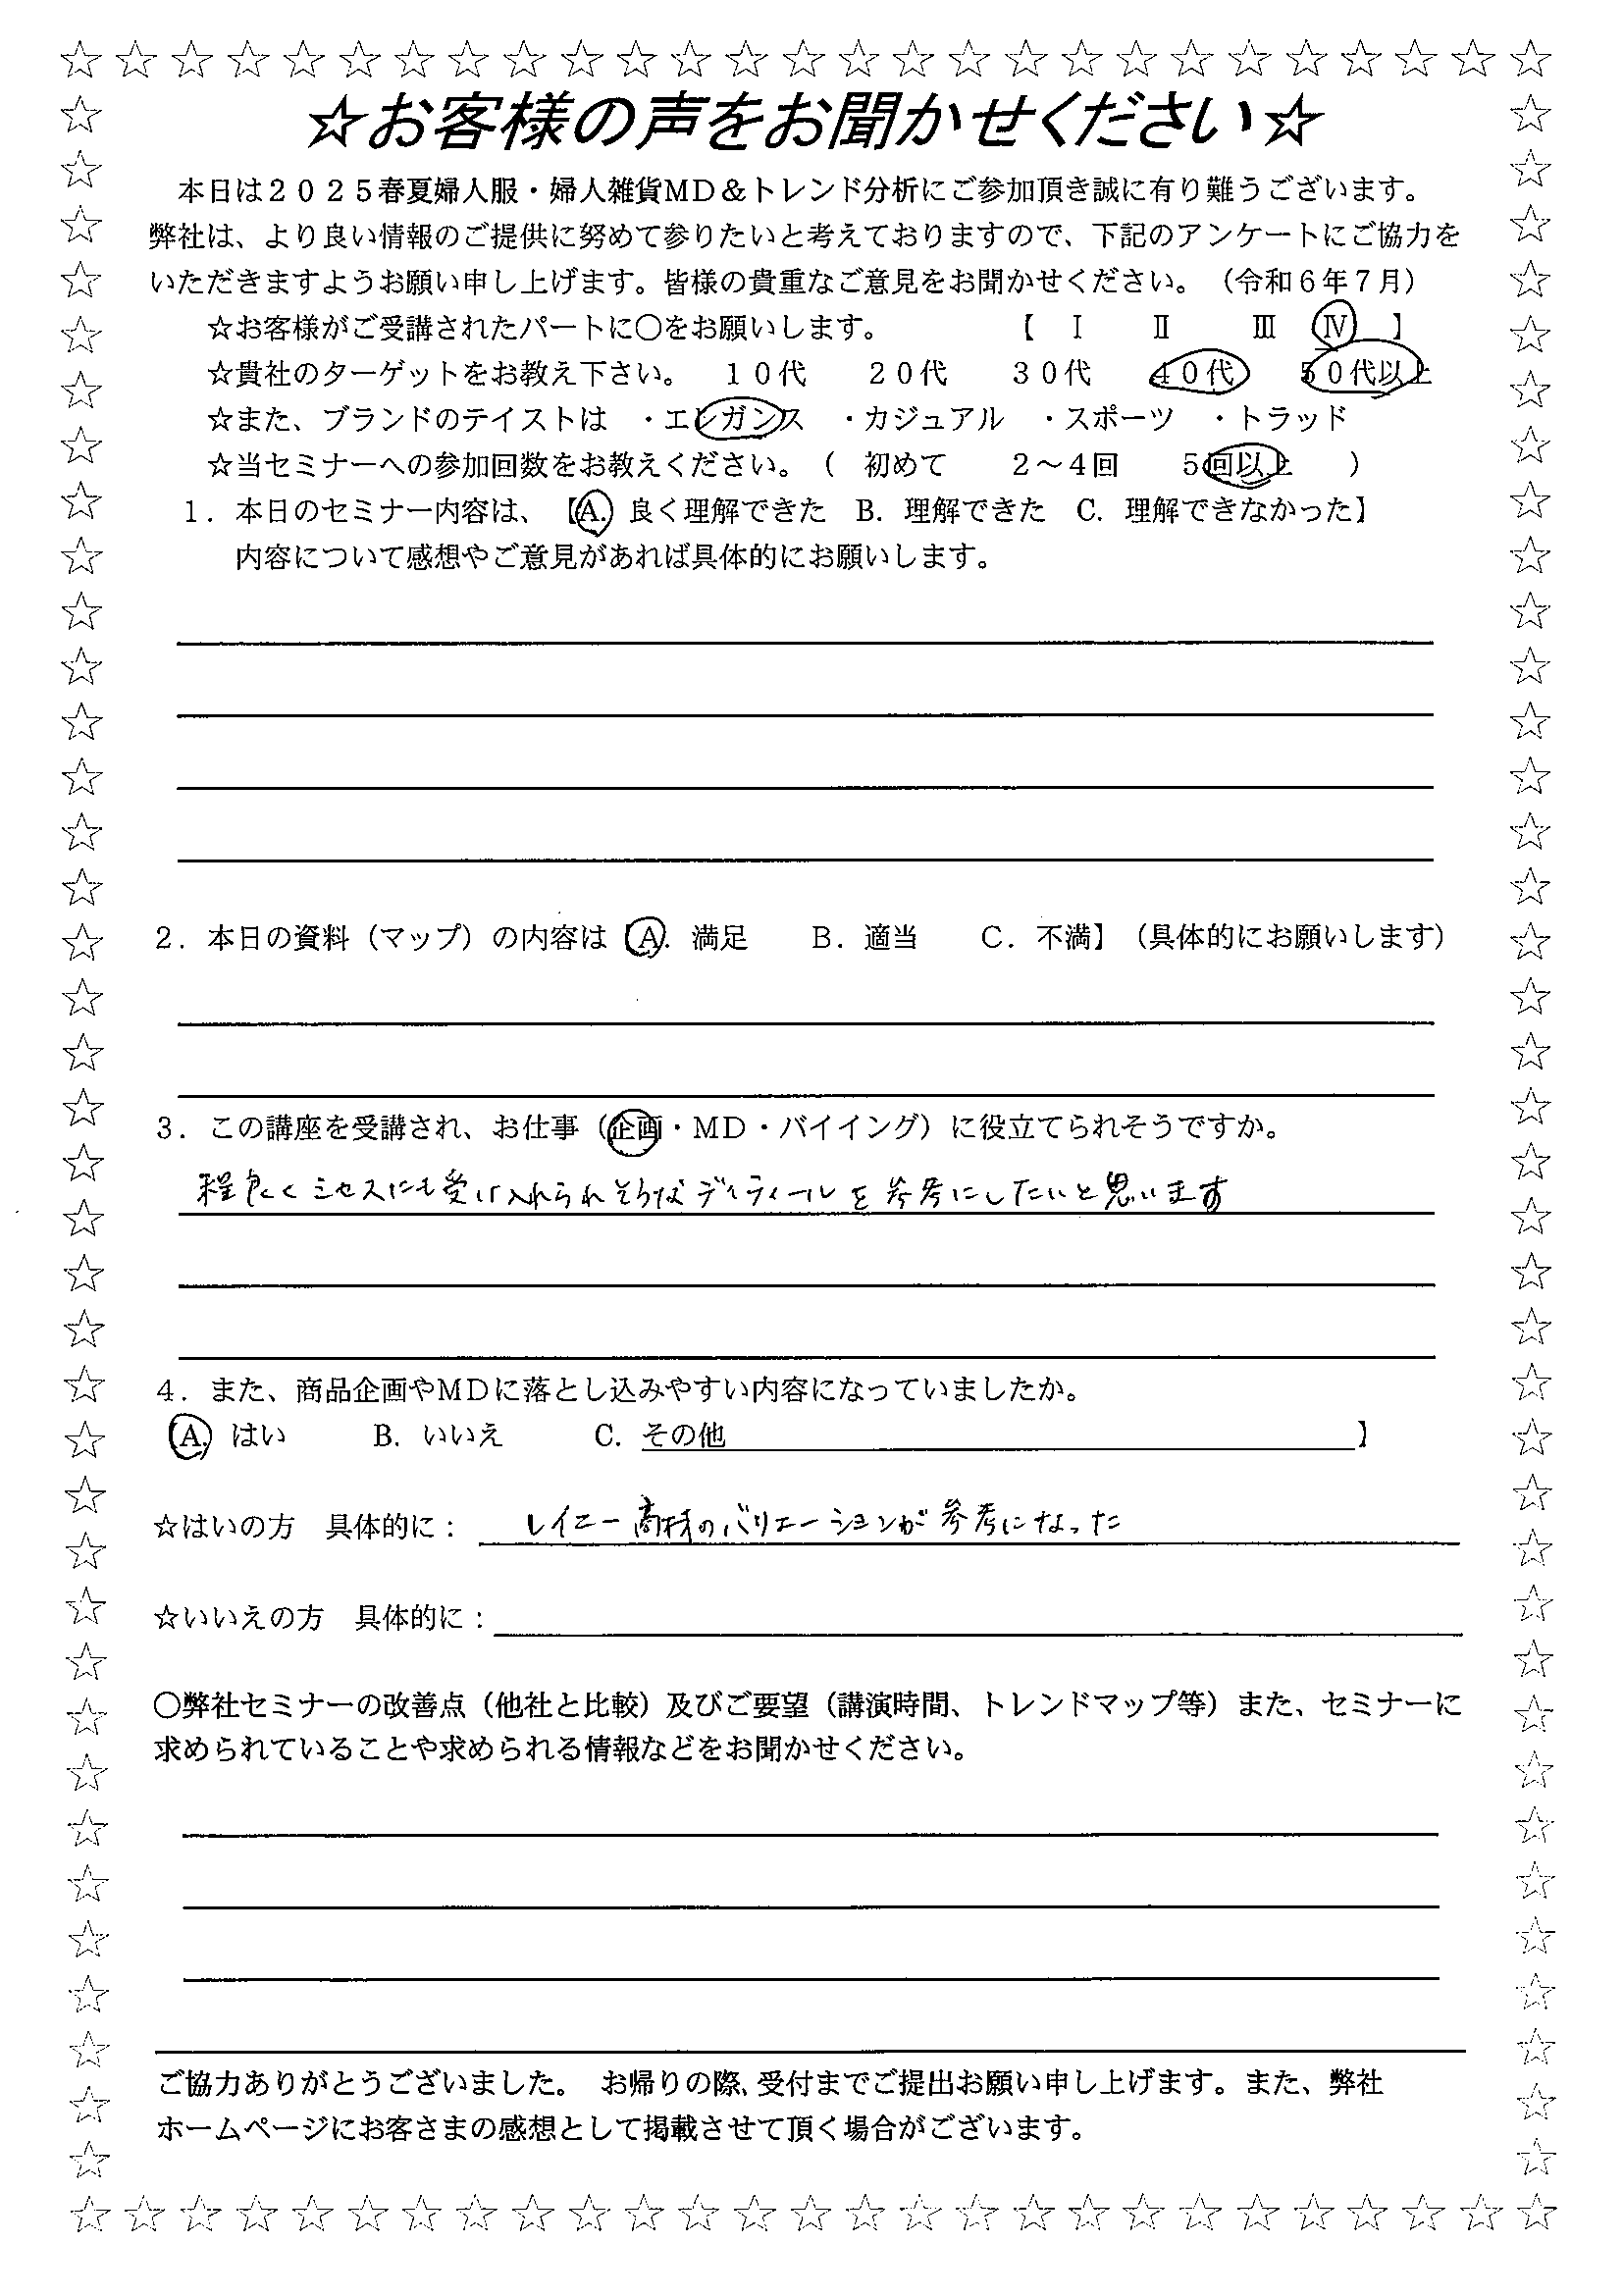 ☆お客様の声をお聞かせください☆
本日は２０２５春夏婦人服・婦人雑貨MD＆トレンド分析にご参加頂き誠に有り難うございます。
弊社は、より良い情報のご提供に努めて参りたいと考えておりますので、下記のアンケートにご協力を
いただきますようお願い申し上げます。皆様の貴重なご意見をお聞かせください。（令和６年７月）
☆お客様がご受講されたパートに〇をお願いします。　【　Ⅰ　Ⅱ　Ⅲ　Ⅳ　】
☆貴社のターゲットをお教え下さい。　１０代　２０代　３０代　４０代　５０代以上
☆また、ブランドのテイストは　・エレガンス　・カジュアル　・スポーツ　・トラッド
☆当セミナーへの参加回数をお教えください。（　初めて　２～４回　５回以上　）
１．本日のセミナー内容は、【A. 良く理解できた　B. 理解できた　C. 理解できなかった】
内容について感想やご意見があれば具体的にお願いします。
２．本日の資料（マップ）の内容は【A. 満足　B．適当　C．不満】（具体的にお願いします）
３．この講座を受講され、お仕事（企画・MD・バイイング）に役立てられそうですか。
程良くミセスにも受け入れられそうなディティールを参考にしたいと思います
４．また、商品企画やMDに落とし込みやすい内容になっていましたか。
【A. はい　B. いいえ　C. その他　】
☆はいの方　具体的に：　レイエー素材のバリエーションが参考になった
☆いいえの方　具体的に：
〇弊社セミナーの改善点（他社と比較）及びご要望（講演時間、トレンドマップ等）また、セミナーに
求められていることや求められる情報などをお聞かせください。
ご協力ありがとうございました。　お帰りの際、受付までご提出お願い申し上げます。また、弊社
ホームページにお客さまの感想として掲載させて頂く場合がございます。